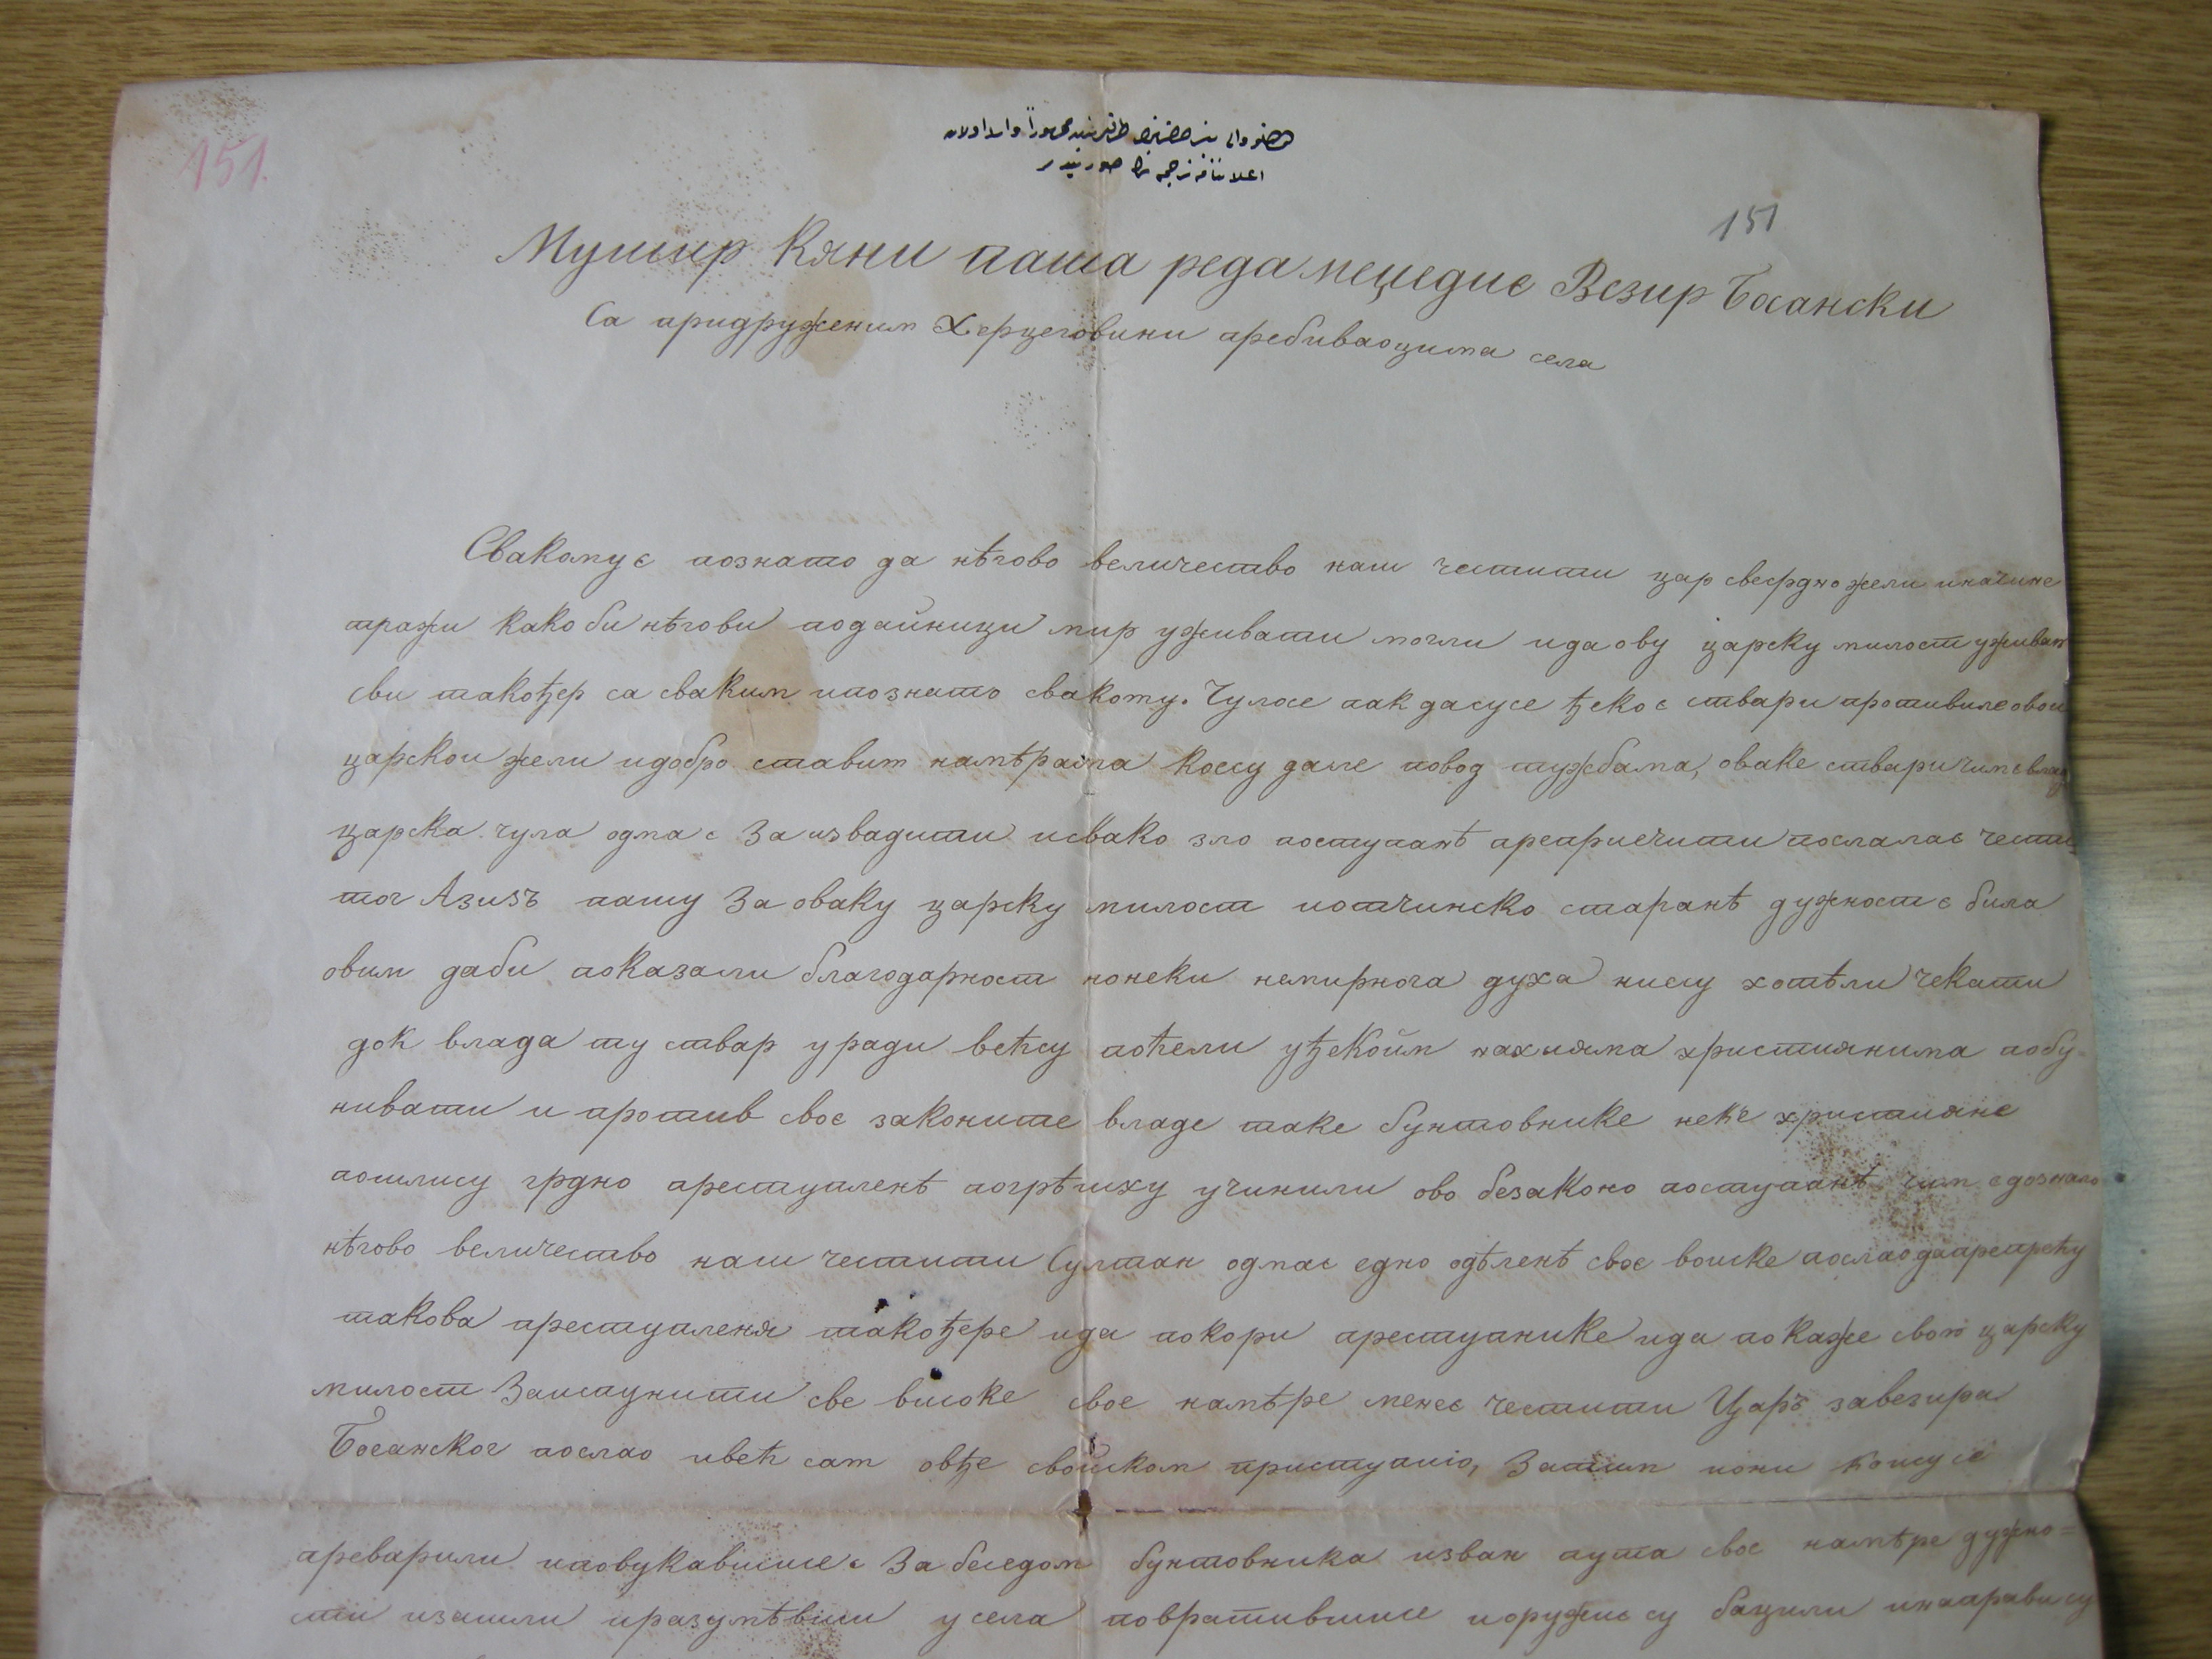 151.
151
Мушир Кяни паша реда меџедие Везир Босански
Са придруженим Херцеговини пребиваоцима села
Свакому є познато да нѣгово величество наш честити цар свеєрдно жели иначине
тражи како би нѣгови подайници мир уживати могли ида ову царску милост уживаю
сви такођер са сваким ипознато свакому. Чулосе пак дасусе ђекоє ствари противиле овои
царскои жели идобро ставит намѣрама коєсу дале повод тужбама, оваке ствари чимє влад
царска чула одма є За извадити исвако зло поступанѣ препричити послалає чести
тог Азизъ пашу За оваку царску милост иотчинско старанѣ дужност є била
овим даби показали благодарност нонеки немирнога духа нису хотѣли чекати
док влада ту ствар уради већсу поћели уђекойм нахияма християнима побу-
нивати и против своє законите владе таке бунтовнике неће християнє
пошлису грдно преступленѣ погрѣшху учинили ово безаконо поступанѣ чим є дознало
нѣгово величество наш честити Султан одмає едно одѣленѣ своє воиске послао дапрепрећу
такова преступленя такођере ида покори преступнике ида покаже свою царску
милост Заиступити све високе своє намѣре менеє честити Царъ завезира
Босанског послао ивећ сам овђе своиском приступио, Затим иони коису сє
преварили иповукавшисе є За беседом бунтовника изван пута своє намѣре дужно=
сти изашли иразумѣвши усела повратившисе иоружиє су бацили инаправи су